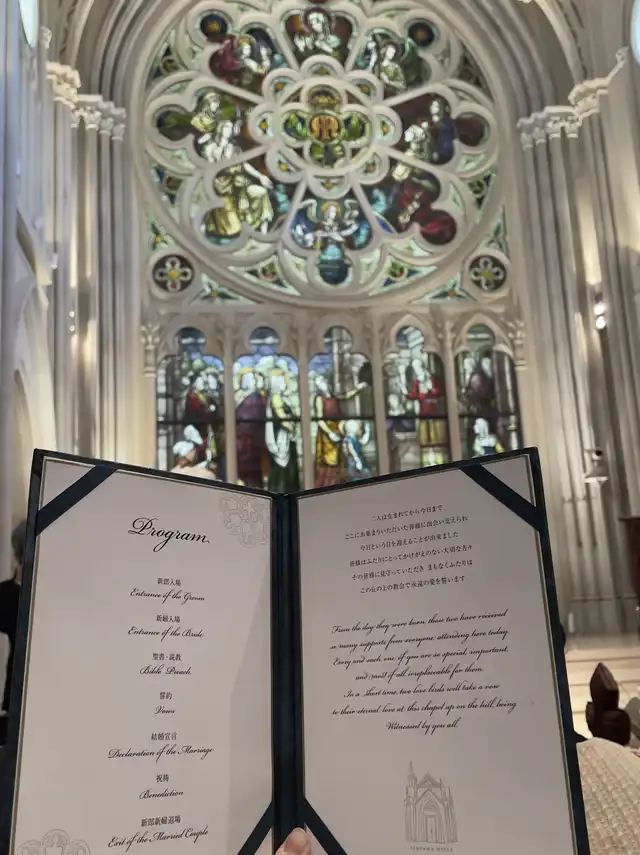 Program
新郎入場
Entrance of the Groom
新婦入場
Entrance of the Bride
聖書・説教
Bible Preach
誓約
Vows
結婚宣言
Declaration of the Marriage
祝祷
Benediction
新郎新婦退場
Exit of the Married Couple
二人は生まれてから今日まで
ここにお集まりいただいた皆様に出会い支えられ
今日という日を迎えることが出来ました
皆様はふたりにとってかけがえのない大切な方々
その皆様に見守っていただき まもなくふたりは
この丘の上の教会で永遠の愛を誓います
From the day they were born, these two have received
so many supports from everyone attending here today.
Every and each one of you are so special, important,
and most of all, irreplaceable for them.
In a short time, two love birds will take a vow
to their eternal love at this chapel up on the hill, being
Witnessed by you all.